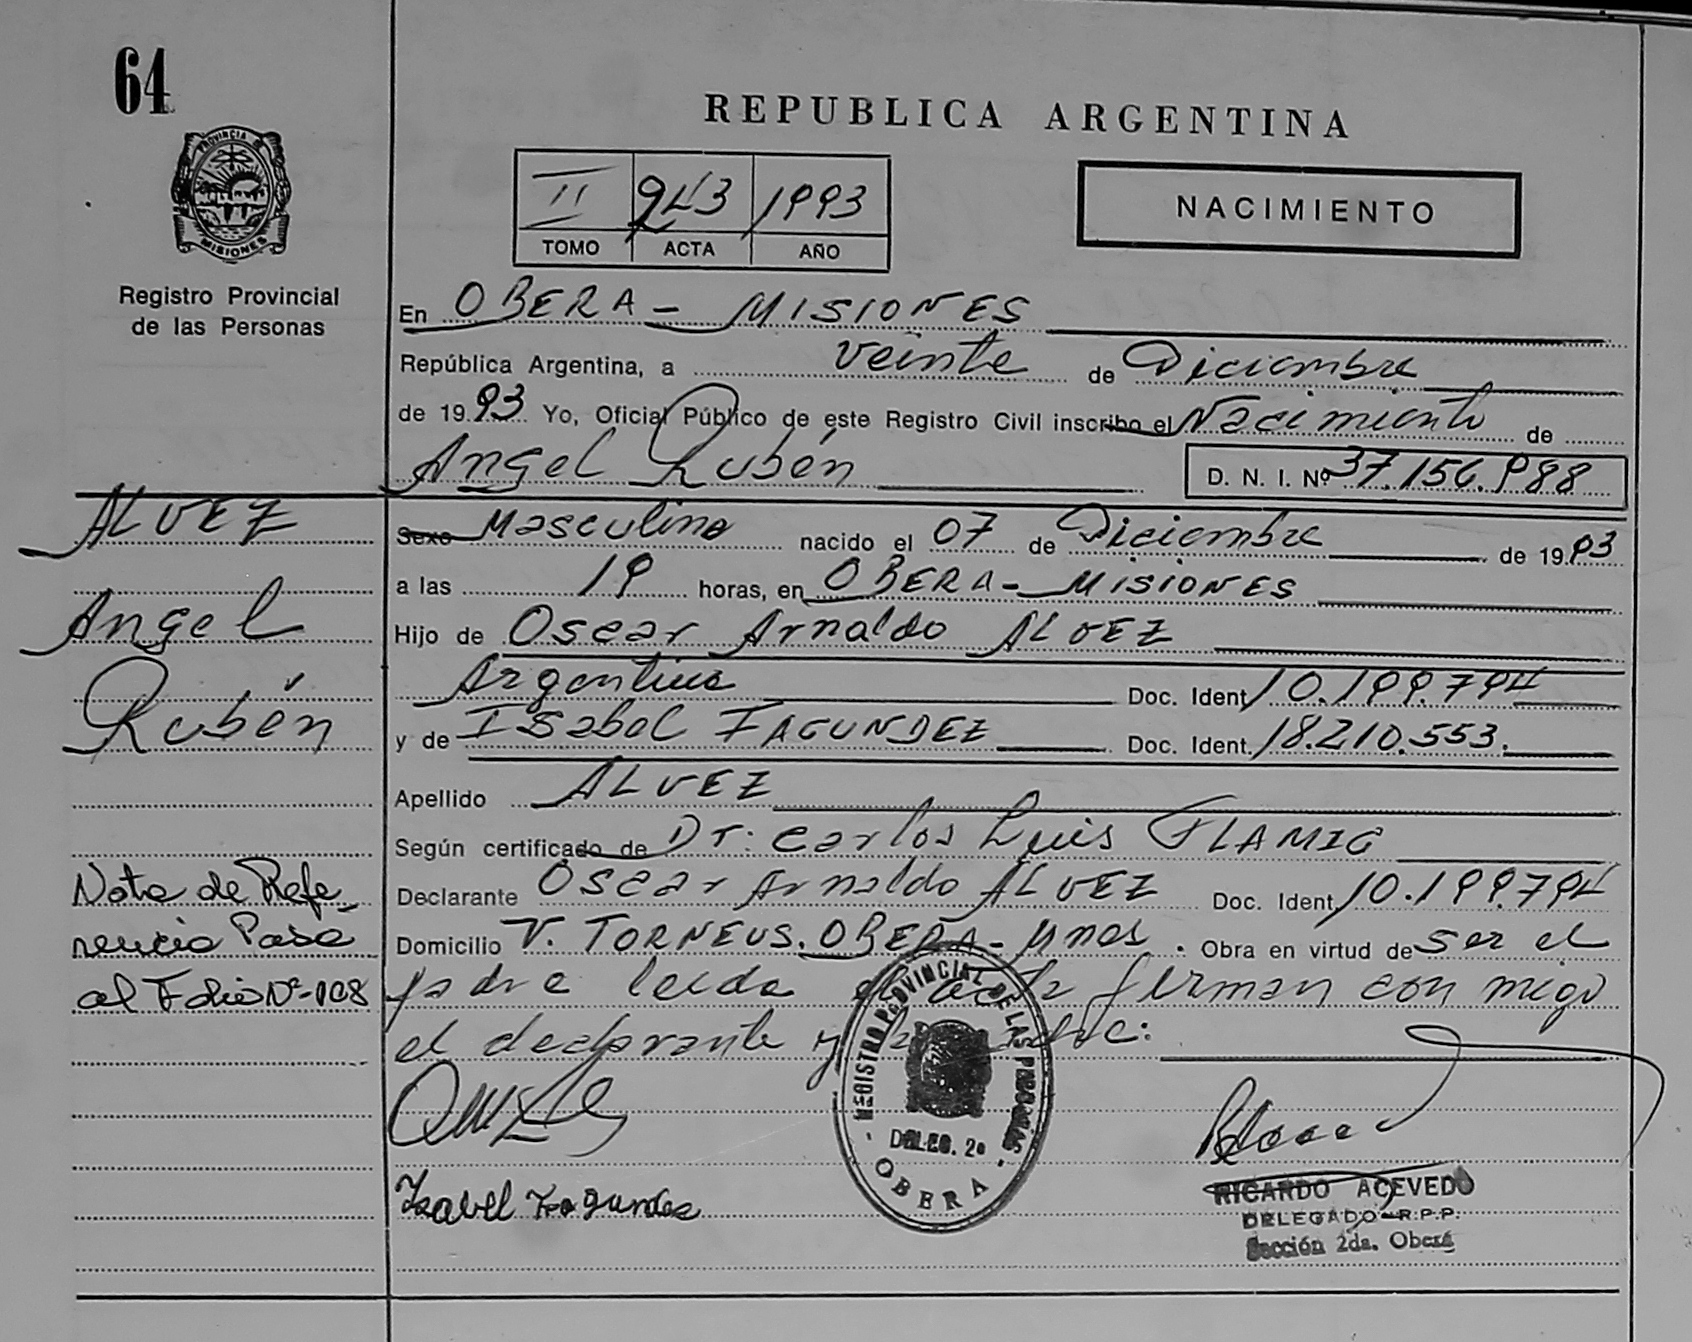 64
REPUBLICA ARGENTINA
PROVINCIA DE
MISIONES
II 943 1993
TOMO ACTA AÑO
NACIMIENTO
Registro Provincial
de las Personas
En OBERA - MISIONES
República Argentina, a veinte de Diciembre
de 1993 Yo, Oficial Público de este Registro Civil inscribo el Nacimiento de
Angel Rubén D. N. I. Nº 37.156.988
ALVEZ
Angel
Rubén
Sexo Masculino nacido el 07 de Diciembre de 1993
a las 19 horas, en OBERA - MISIONES
Hijo de Oscar Arnaldo ALVEZ
Argentina Doc. Ident. 10.199.794
y de Isabel FAGUNDEZ Doc. Ident. 18.210.553.
Apellido ALVEZ
Según certificado de DT: Carlos Luis FLAMIG
Declarante Oscar Arnaldo ALVEZ Doc. Ident. 10.199.794
Domicilio V. TORNEUS. OBERA - Mnes. Obra en virtud de ser el
padre leida el acta firman con migo
el declarante y la
Nota de Refe-
rencia Pasa
al Folio Nº 108
REGISTRO PROVINCIAL DE LAS PERSONAS
DELEG. 2ª
OBERA
Izabel Fagundez
RICARDO ACEVEDO
DELEGADO R.P.P.
Sección 2da. Oberá